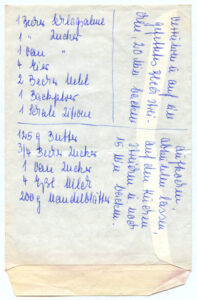 1 Becher Schlagsahne
1 " Zucker
1 Van "
4 Eier
2 Becher Mehl
1 Backpulver
1 Schale Zitrone
verrühren u auf ein
gefettetes Blech strei-
chen - 20 Min backen
125 g Butter
3/4 Becher Zucker
1 Van Zucker
4 Eßl. Milch
200 g Mandelblätter
aufkochen,
abkühlen lassen,
auf den Kuchen
streichen u noch
15 Min backen.